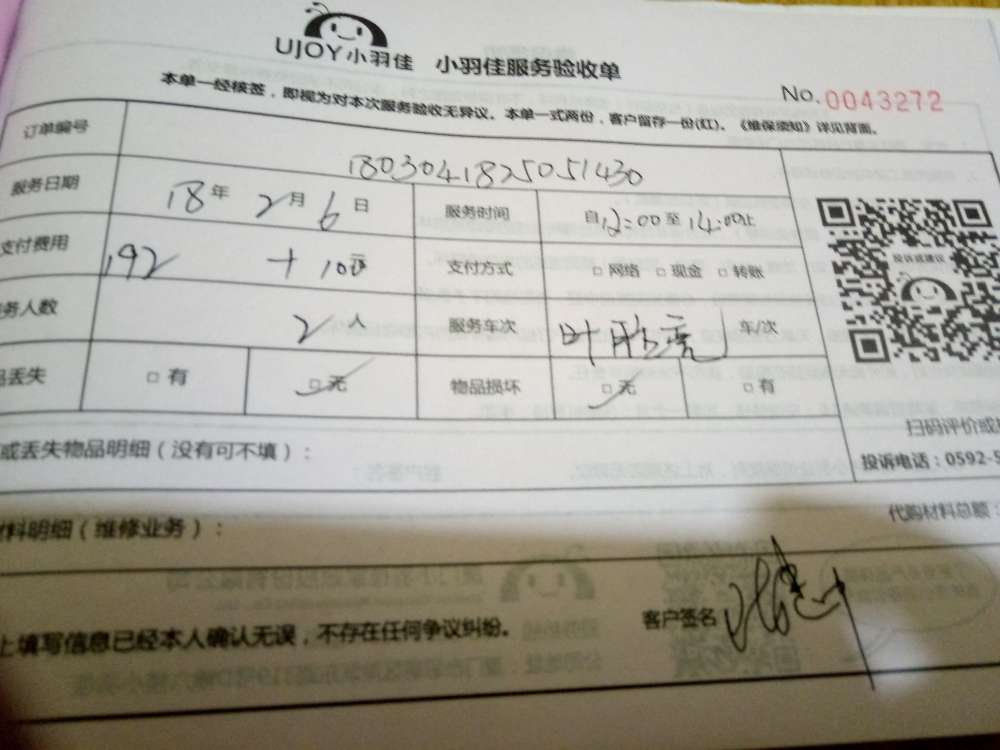 UJOY小羽佳 小羽佳服务验收单
No.0043272
本单一经核签，即视为对本次服务验收无异议。本单一式两份，客户留存一份(红)。《维保须知》详见背面。
订单编号 1803041825051430
服务日期 18年 2月 6日 服务时间 自12:00至14:00止
支付费用 192 + 100 支付方式 □网络 □现金 □转账
务人数 2人 服务车次 叶胜亮 年/次
品丢失 □有 □无 物品损坏 □无 □有
投诉或建议
扫码评价或
投诉电话：0592-5
或丢失物品明细（没有可不填）：
代购材料总额：
材料明细（维修业务）：
上填写信息已经本人确认无误，不存在任何争议纠纷。 客户签名